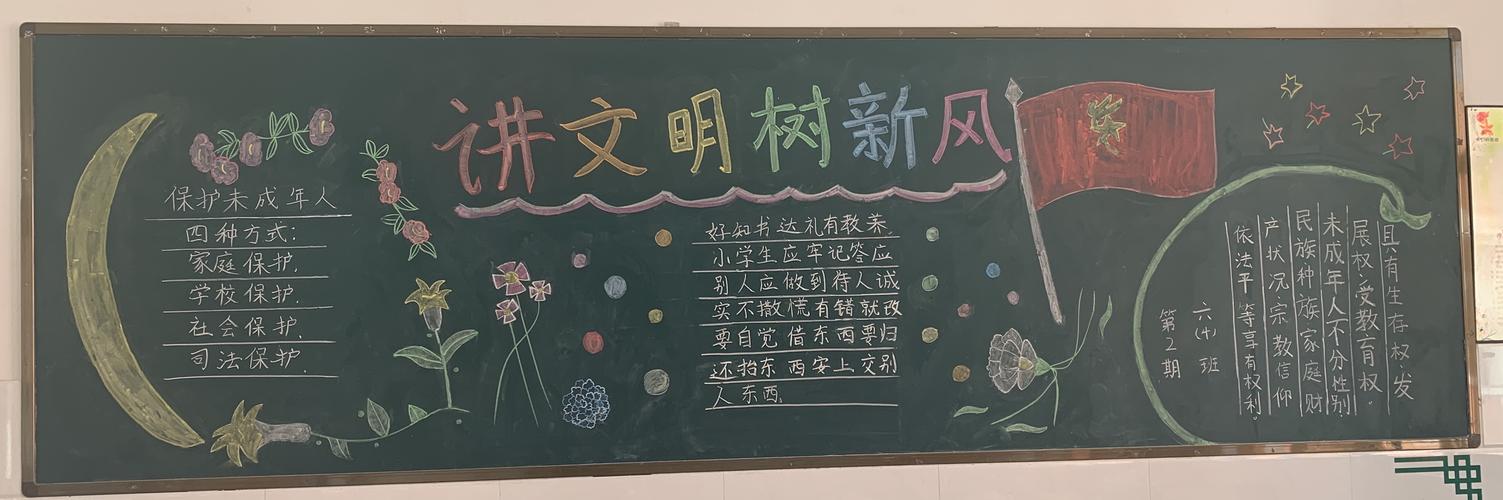 讲文明树新风
保护未成年人
四种方式：
家庭保护.
学校保护.
社会保护.
司法保护.
好知书达礼有教养.
小学生应牢记答应
别人应做到待人诚
实不撒慌有错就改
要自觉借东西要归
还拾东西安上交别
人东西.
具有生存权.发
展权.受教育权.
未成年人不分性别
民族种族家庭财
产状况宗教信仰
依法平等享有权利。
六(十)班
第2期